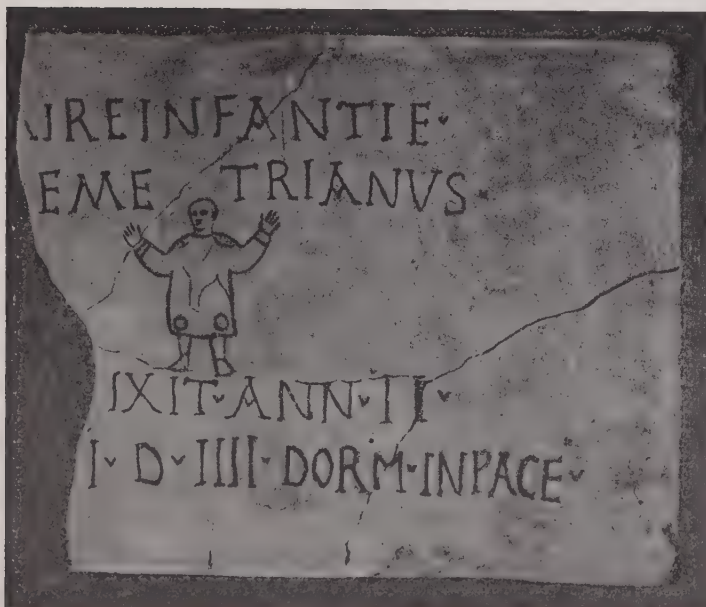 UREINFANTIE
EME TRIANVS
IXIT·ANN·II
I·D·IIII·DORM·INPACE